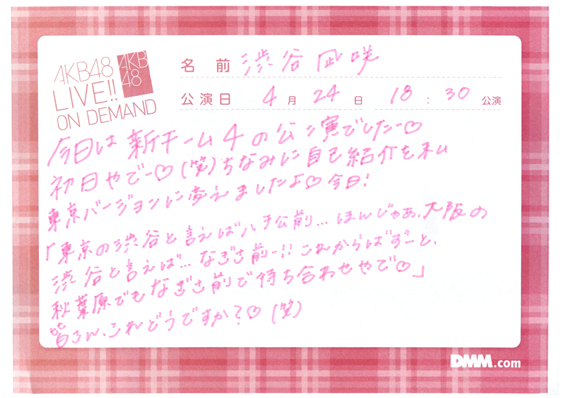 AKB48
LIVE!!
ON DEMAND
AKB
48
名 前 渋谷 凪咲
公演日 4 月 24 日 18 : 30 公演
今日は新チーム4の公演でしたー♡
初日やでー♡(笑)ちなみに自己紹介を私
東京バージョンに変えましたよ♡今日!
「東京の渋谷と言えばハチ公前…ほんじゃあ、大阪の
渋谷と言えば…なぎさ前ー!!これからはずーと、
秋葉原でもなぎさ前で待ち合わせやで♡」
皆さん、これどうですか?♡(笑)
DMM.com